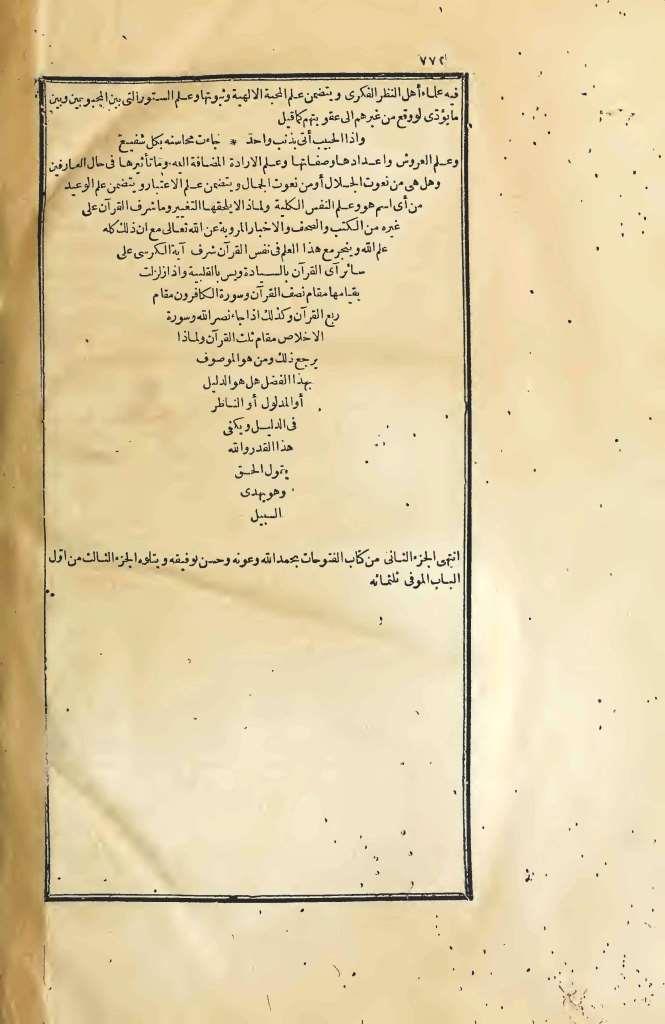 ٧٧٢
فيه علماء أهل النظر الفكرى ويتضمن علم المحبة الالهية وثبوتها وعلم الستور التى بين المحبوبين وبين
ما يؤدى لو وقع من غيرهم الى عقوبتهم كما قيل
واذا الحبيب أتى بذنب واحد * جاءت محاسنه بكل شفيع
وعلم العروش واعدادها وصفاتها وعلم الارادة المضافة اليه وما تأثيرها فى حال العارفين
وهل هى من نعوت الجلال أو من نعوت الجمال ويتضمن علم الاعتبار ويتضمن علم الوعيد
من أى اسم هو وعلم النفس الكلية ولماذا لا يلحقها التغيير وما شرف القرآن على
غيره من الكتب والصحف والاخبار المروية عن الله تعالى مع ان ذلك كله
علم الله وينجر مع هذا العلم فى نفس القرآن شرف آية الكرسى على
سائر آى القرآن بالسيادة ويس بالقلبية واذا زلزلت
بقيامها مقام نصف القرآن وسورة الكافرون مقام
ربع القرآن وكذلك اذا جاء نصر الله وسورة
الاخلاص مقام ثلث القرآن ولماذا
يرجع ذلك ومن هو الموصوف
بهذا الفضل هل هو الدليل
أو المدلول أو الناظر
فى الدليل ويكفى
هذا القدر والله
يقول الحق
وهو يهدى
السبيل
انتهى الجزء الثانى من كتاب الفتوحات بحمد الله وعونه وحسن توفيقه ويتلوه الجزء الثالث من اول
الباب الموفى ثلثمائه